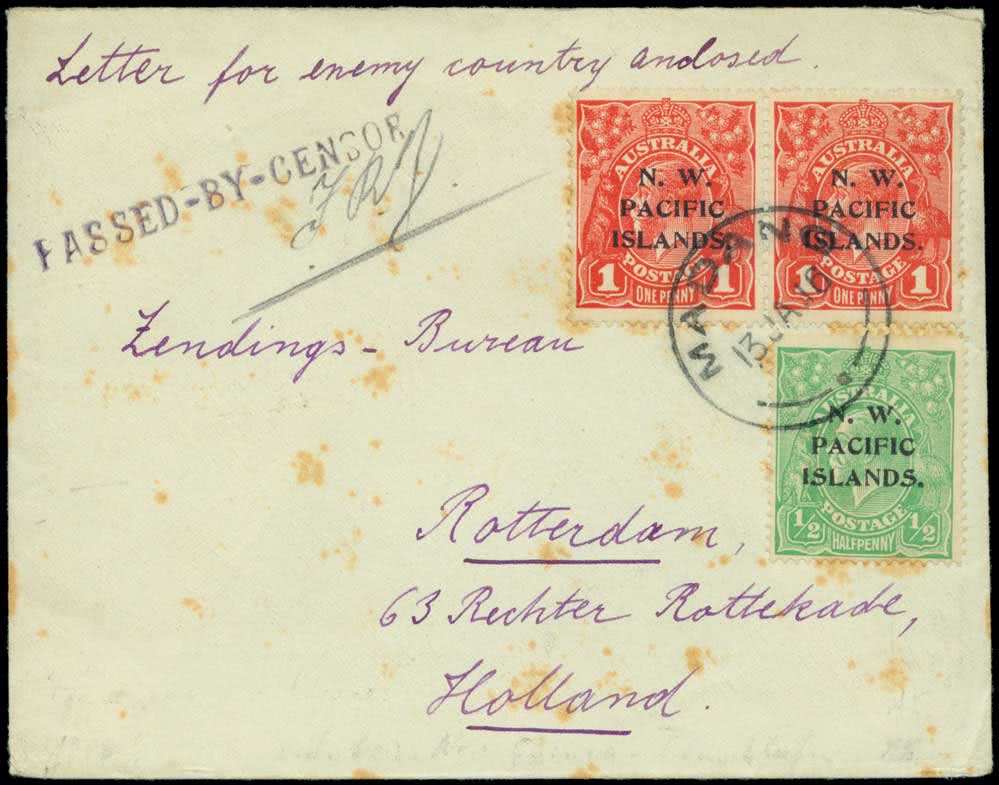 Letter for enemy country anclosed.
PASSED-BY-CENSOR
Zendings - Bureau
Rotterdam,
63 Rechter Rottekade,
Holland.
AUSTRALIA
N. W.
PACIFIC
ISLANDS.
1 POSTAGE 1
ONE PENNY
AUSTRALIA
N. W.
PACIFIC
ISLANDS.
1 POSTAGE 1
ONE PENNY
MADANG
13 JA 16
AUSTRALIA
N. W.
PACIFIC
ISLANDS.
1/2 POSTAGE 1/2
HALFPENNY